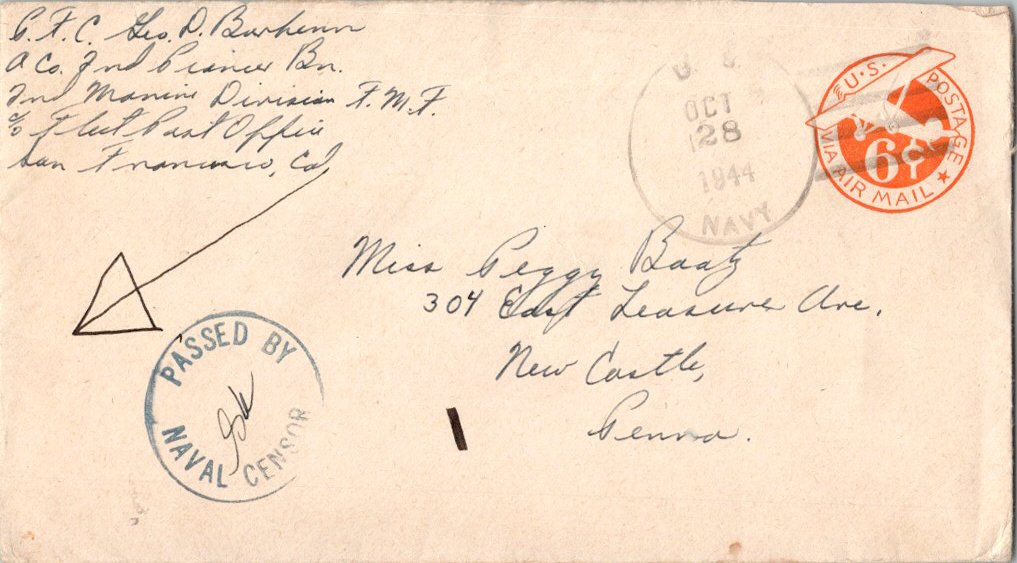 P. F. C. Geo. D. Barhenn
A Co. 2nd Pioneer Bn.
2nd Marine Division F. M. F.
c/o Fleet Post Office
San Francisco, Cal
U. S.
OCT
28
1944
NAVY
U.S. POSTAGE
6¢
VIA AIR MAIL
Miss Peggy Baatz
304 East Leasure Ave.
New Castle,
Penna.
PASSED BY
NAVAL CENSOR